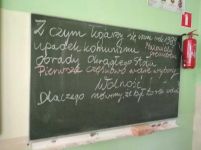 Z czym kojarzy się wam rok 1989
upadek komunizmu
obrady Okrągłego Stołu
Pierwsze częściowo wolne wybory
Wolność
Dlaczego mówimy, że był to rok